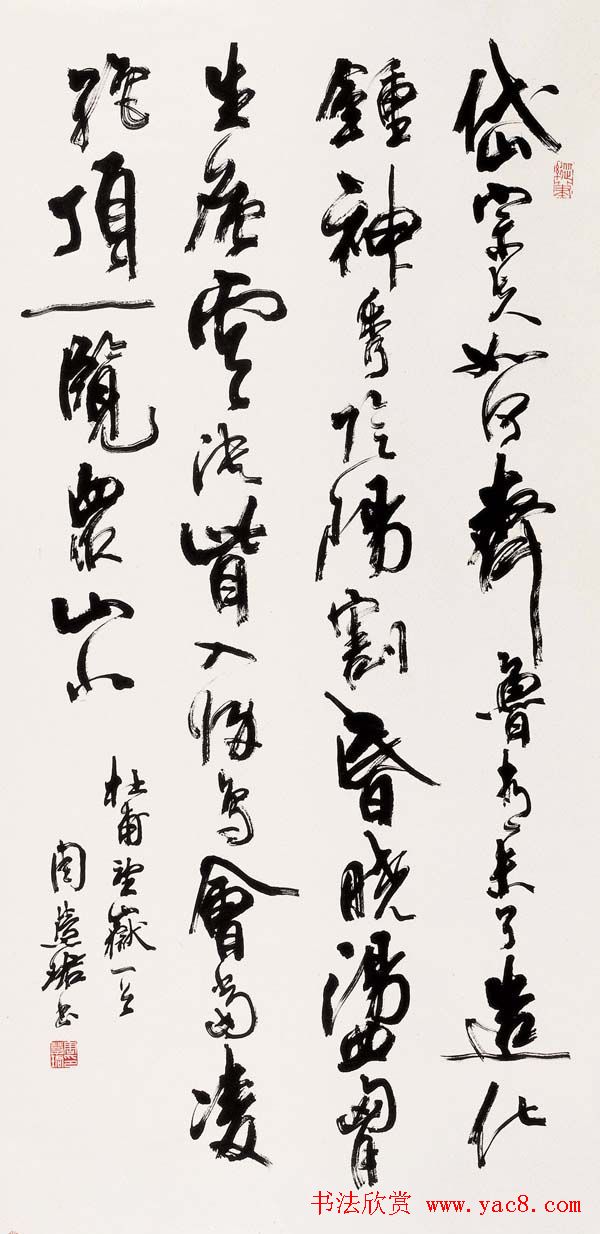 岱宗夫如何齊魯青未了造化
鍾神秀陰陽割昏曉盪胷
生層雲決眥入歸鳥會當凌
絕頂一覽衆山小
杜甫望嶽一首
周慧珺書
书法欣赏 www.yac8.com